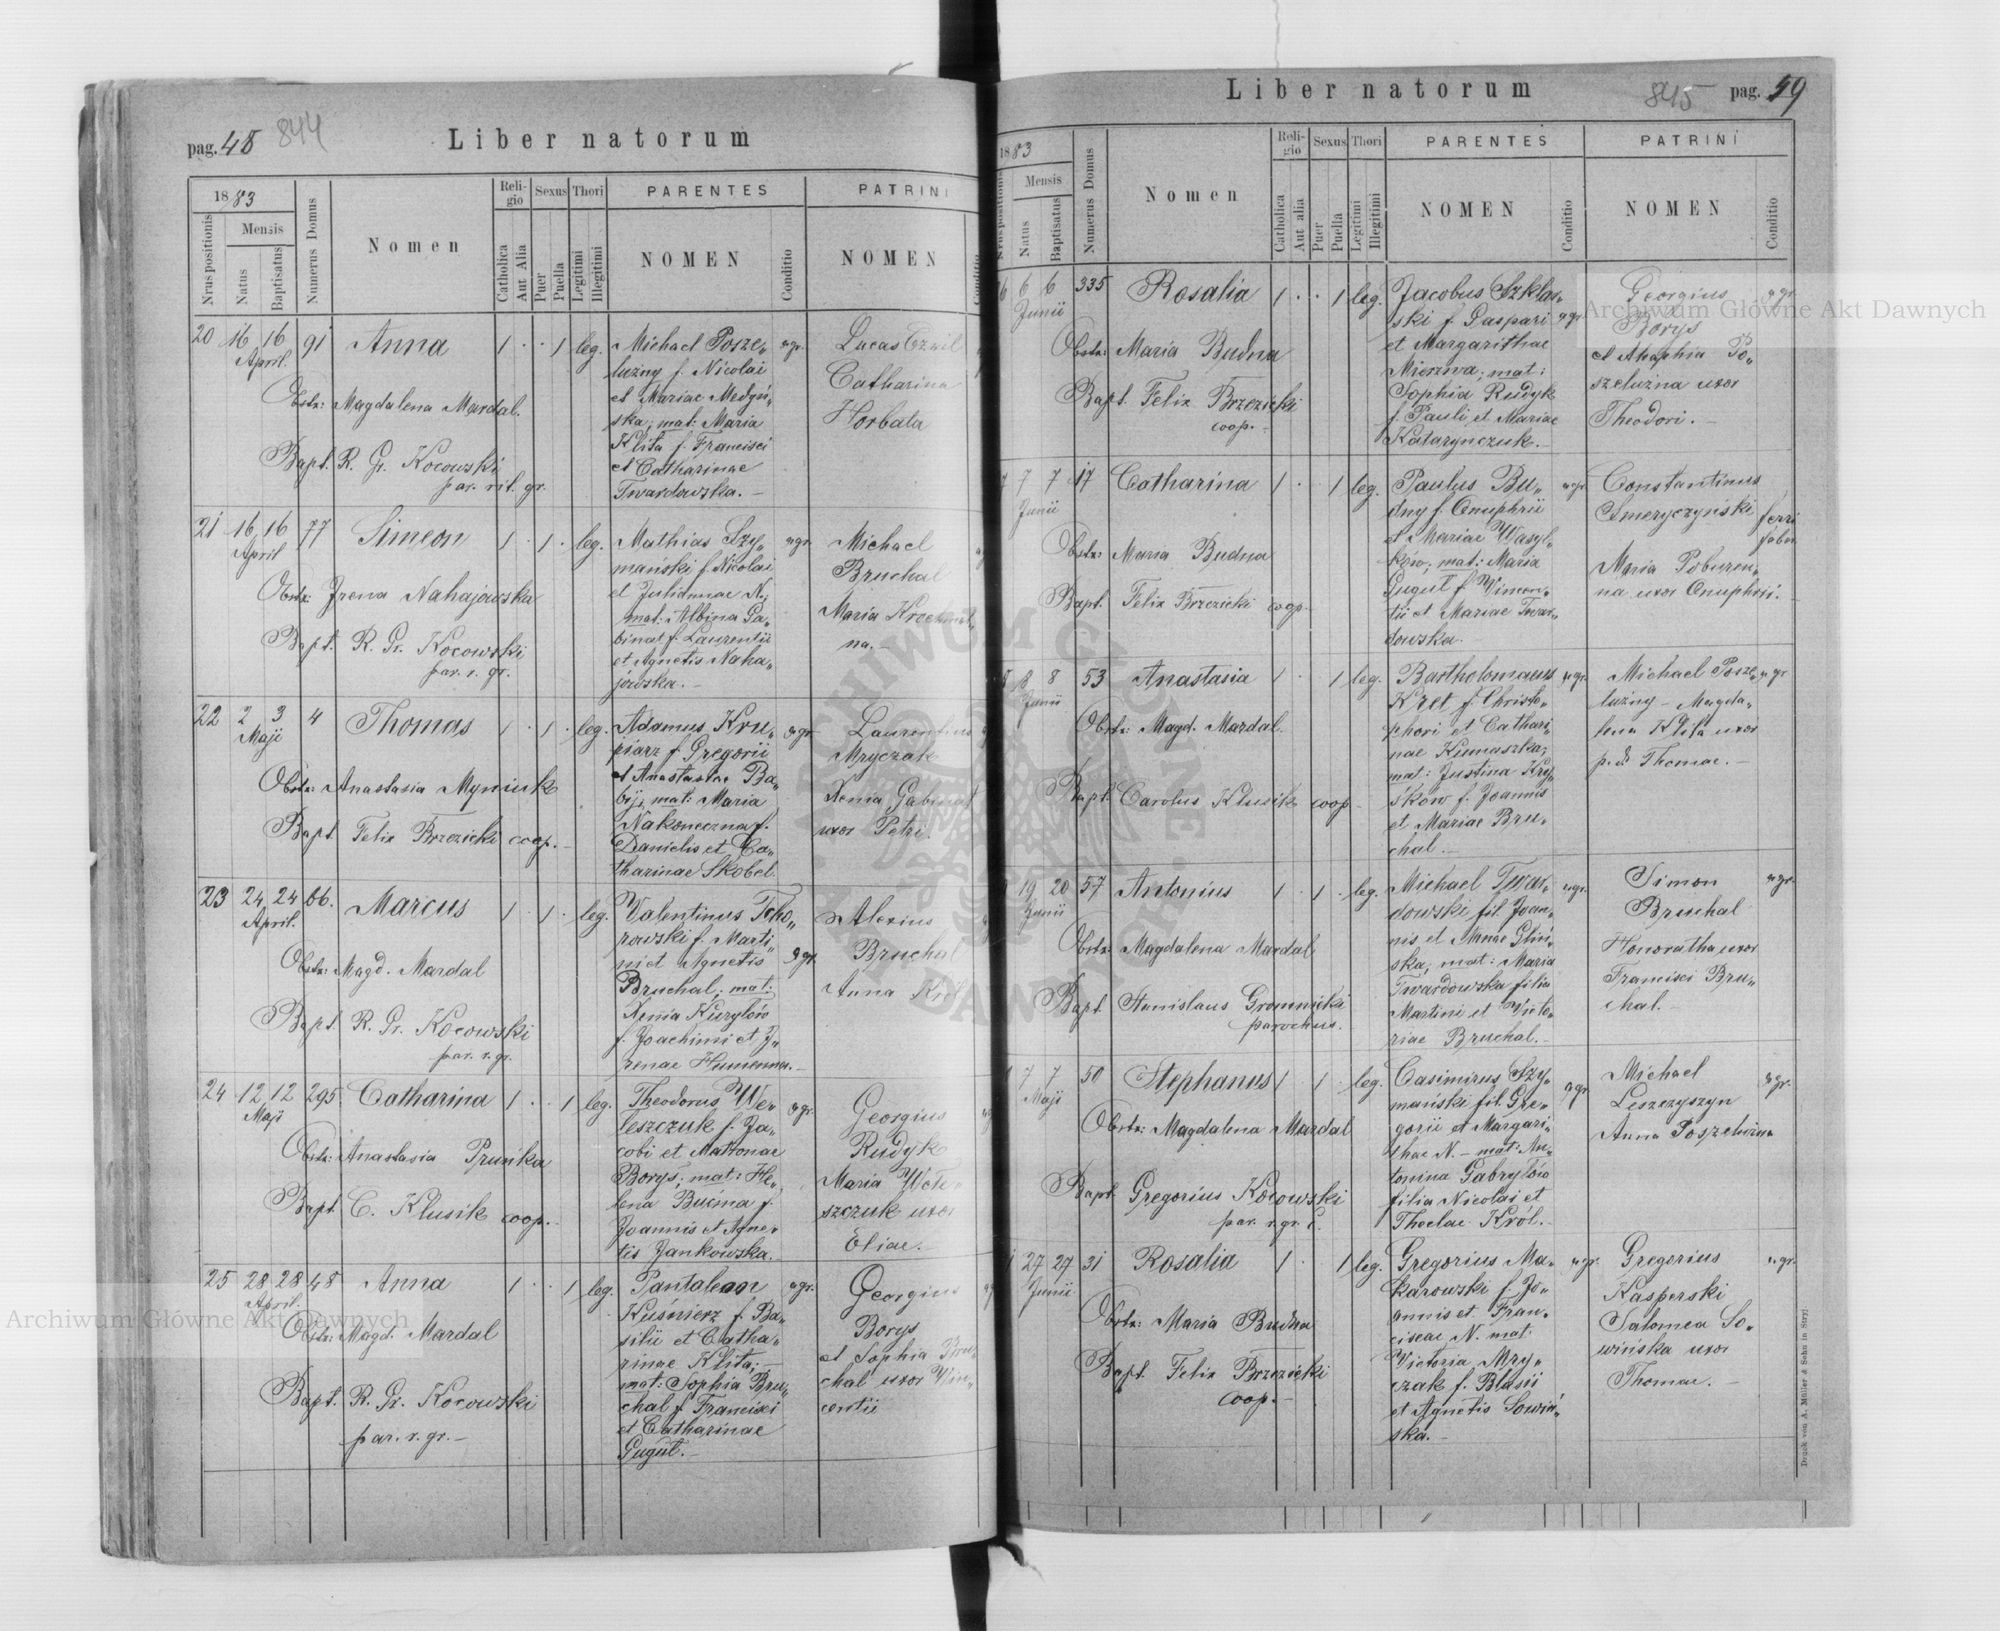 pag. 48 844
Liber natorum
1883
Nrus positionis
Mensis
Natus
Baptisatus
Numerus Domus
Nomen
Religio
Catholica
Aut Alia
Sexus
Puer
Puella
Thori
Legitimi
Illegitimi
PARENTES
NOMEN
Conditio
PATRINI
NOMEN
Conditio
20 16 16 91 Anna 1 · · 1 leg.
April.
Obstx: Magdalena Mardal.
Bapt. R. Gr. Kocowski
par. rit. gr.
Michael Posze„
luzny f. Nicolai
et Mariae Medyń„
ska; mat: Maria
Klita f. Francisci
et Catharinae
Twardowska. –
agr.
Lucas
Catharina
Horbata
21 16 16 77 Simeon 1 · 1 · leg.
April
Obstx: Irena Nahajowska
Bapt. R. Gr. Kocowski
par. r. gr.
Mathias Szy„
mański f. Nicolai
et Juliannae N.;
mat: Albina Ga„
binat f. Laurentii
et Agnetis Naha„
jowska. –
agr.
Michael
Bruchal
Maria
na. –
22 2 3 4 Thomas 1 · 1 · leg.
Maji
Obstx: Anastasia Myniuk
Bapt. Felix Brzezicki coop. –
Adamus Kru„
piarz f. Gregorii
et Anastasiae Ba„
bij; mat: Maria
Nakoneczna f.
Danielis et Ca„
tharinae Skobel.
agr.
Laurentius
Mryczak
Xenia Gabinat
uxor Petri.
23 24 24 66. Marcus 1 · 1 · leg.
April.
Obstx: Magd. Mardal
Bapt. R. Gr. Kocowski
par. r. gr.
Valentinus Tcho„
rowski f. Marti„
ni et Agnetis
Bruchal; mat:
Xenia Kuzylów
f. Joachimi et I„
renae Humenna. –
agr.
Alexius
Bruchal
Anna Kret
24 12 12 295 Catharina 1 · · 1 leg.
Maji
Obstx: Anastasia Prunka
Bapt. C. Klusik coop. –
Theodorus We„
leszczuk f. Ja„
cobi et Matronae
Borys; mat: He„
lena Bucma f.
Joannis et Agne„
tis Jankowska. –
agr.
Georgius
Rudyk
Maria Wełe„
szczuk uxor
Eliae. –
25 28 28 48 Anna 1 · · 1 leg.
April.
Obstx: Magd. Mardal
Bapt. R. Gr. Kocowski
par. r. gr. –
Pantaleon
Kuśnierz f. Ba„
silii et Catha„
rinae Klita; –
mat: Sophia Bru„
chal f. Francisci
et Catharinae
Gugut. –
agr.
Georgius
Borys
et Sophia Bru„
chal uxor Vin„
centii
Liber natorum
845 pag. 49
1883
Nrus positionis
Mensis
Natus
Baptisatus
Numerus Domus
Nomen
Religio
Catholica
Aut alia
Sexus
Puer
Puella
Thori
Legitimi
Illegitimi
PARENTES
NOMEN
Conditio
PATRINI
NOMEN
Conditio
6 6 6 335 Rosalia 1 · · 1 leg.
Junii
Obstx: Maria Budna
Bapt. Felix Brzezicki
coop. –
Jacobus Szklar„
ski f. Gaspari
et Margarithae
Mierzwa; mat:
Sophia Rudyk
f. Pauli et Mariae
Katarynczuk. –
agr.
Georgius
Borys
et Ahaphia Po„
szeluźna uxor
Theodori. –
agr.
7 7 7 17 Catharina 1 · 1 leg.
Junii
Obstx: Maria Budna
Bapt. Felix Brzezicki coop. –
Paulus Bu„
dny f. Onuphrii
et Mariae Wasyl„
ków; mat: Maria
Gugut f. Vincen„
tii et Mariae Twar„
dowska. –
agr.
Constantinus
Smeryczyński
Maria Poburen„
na uxor Onuphrii. –
ferri
faber
8 8 53 Anastasia 1 · 1 leg.
Junii
Obstx: Magd. Mardal.
Bapt. Carolus Klusik coop –
Bartholomaeus
Kret f. Christo„
phori et Cathari„
nae Kumaszka;
mat: Justina Kry„
śków f. Joannis
et Mariae Bru„
chal. –
agr.
Michael Posze„
luźny – Magda„
lena Klita uxor
p. d. Thomae. –
agr
19 20 57 Antonius 1 · 1 · leg.
Junii
Obstx: Magdalena Mardal
Bapt. Stanislaus Gromnicki
parochus.
Michael Twar„
dowski fil. Joan„
nis et Mariae Gliń„
ska; mat: Maria
Twardowska filia
Martini et Victo„
riae Bruchal. –
agr.
Simon
Bruchal
Honoratha uxor
Francisci Bru„
chal. –
agr.
7 7 50 Stephanus 1 · 1 · leg.
Maji
Obstx: Magdalena Mardal
Bapt. Gregorius Kocowski
par. r. gr. c.
Casimirus Szy„
mański fil. Gre„
gorii et Margari„
thae N. – mat: An„
tonina Gabrylów
filia Nicolai et
Theclae Król. –
agr.
Michael
Leszczyszyn
Anna Poszeluźna
agr.
27 27 31 Rosalia 1 · 1 leg.
Junii
Obstx: Maria Budna
Bapt. Felix Brzezicki
coop. –
Gregorius Ma„
karowski f. Jo„
annis et Fran„
ciscae N. mat:
Victoria Mry„
czak f. Blasii
et Agnetis Sowiń„
ska. –
agr.
Gregorius
Kasperski
Salomea So„
wińska uxor
Thomae. –
agr.
Druck von A. Müller & Sohn in Stryj.
Archiwum Główne Akt Dawnych
Archiwum Główne Akt Dawnych
ARCHIWUM GŁÓWNE AKT DAWNYCH